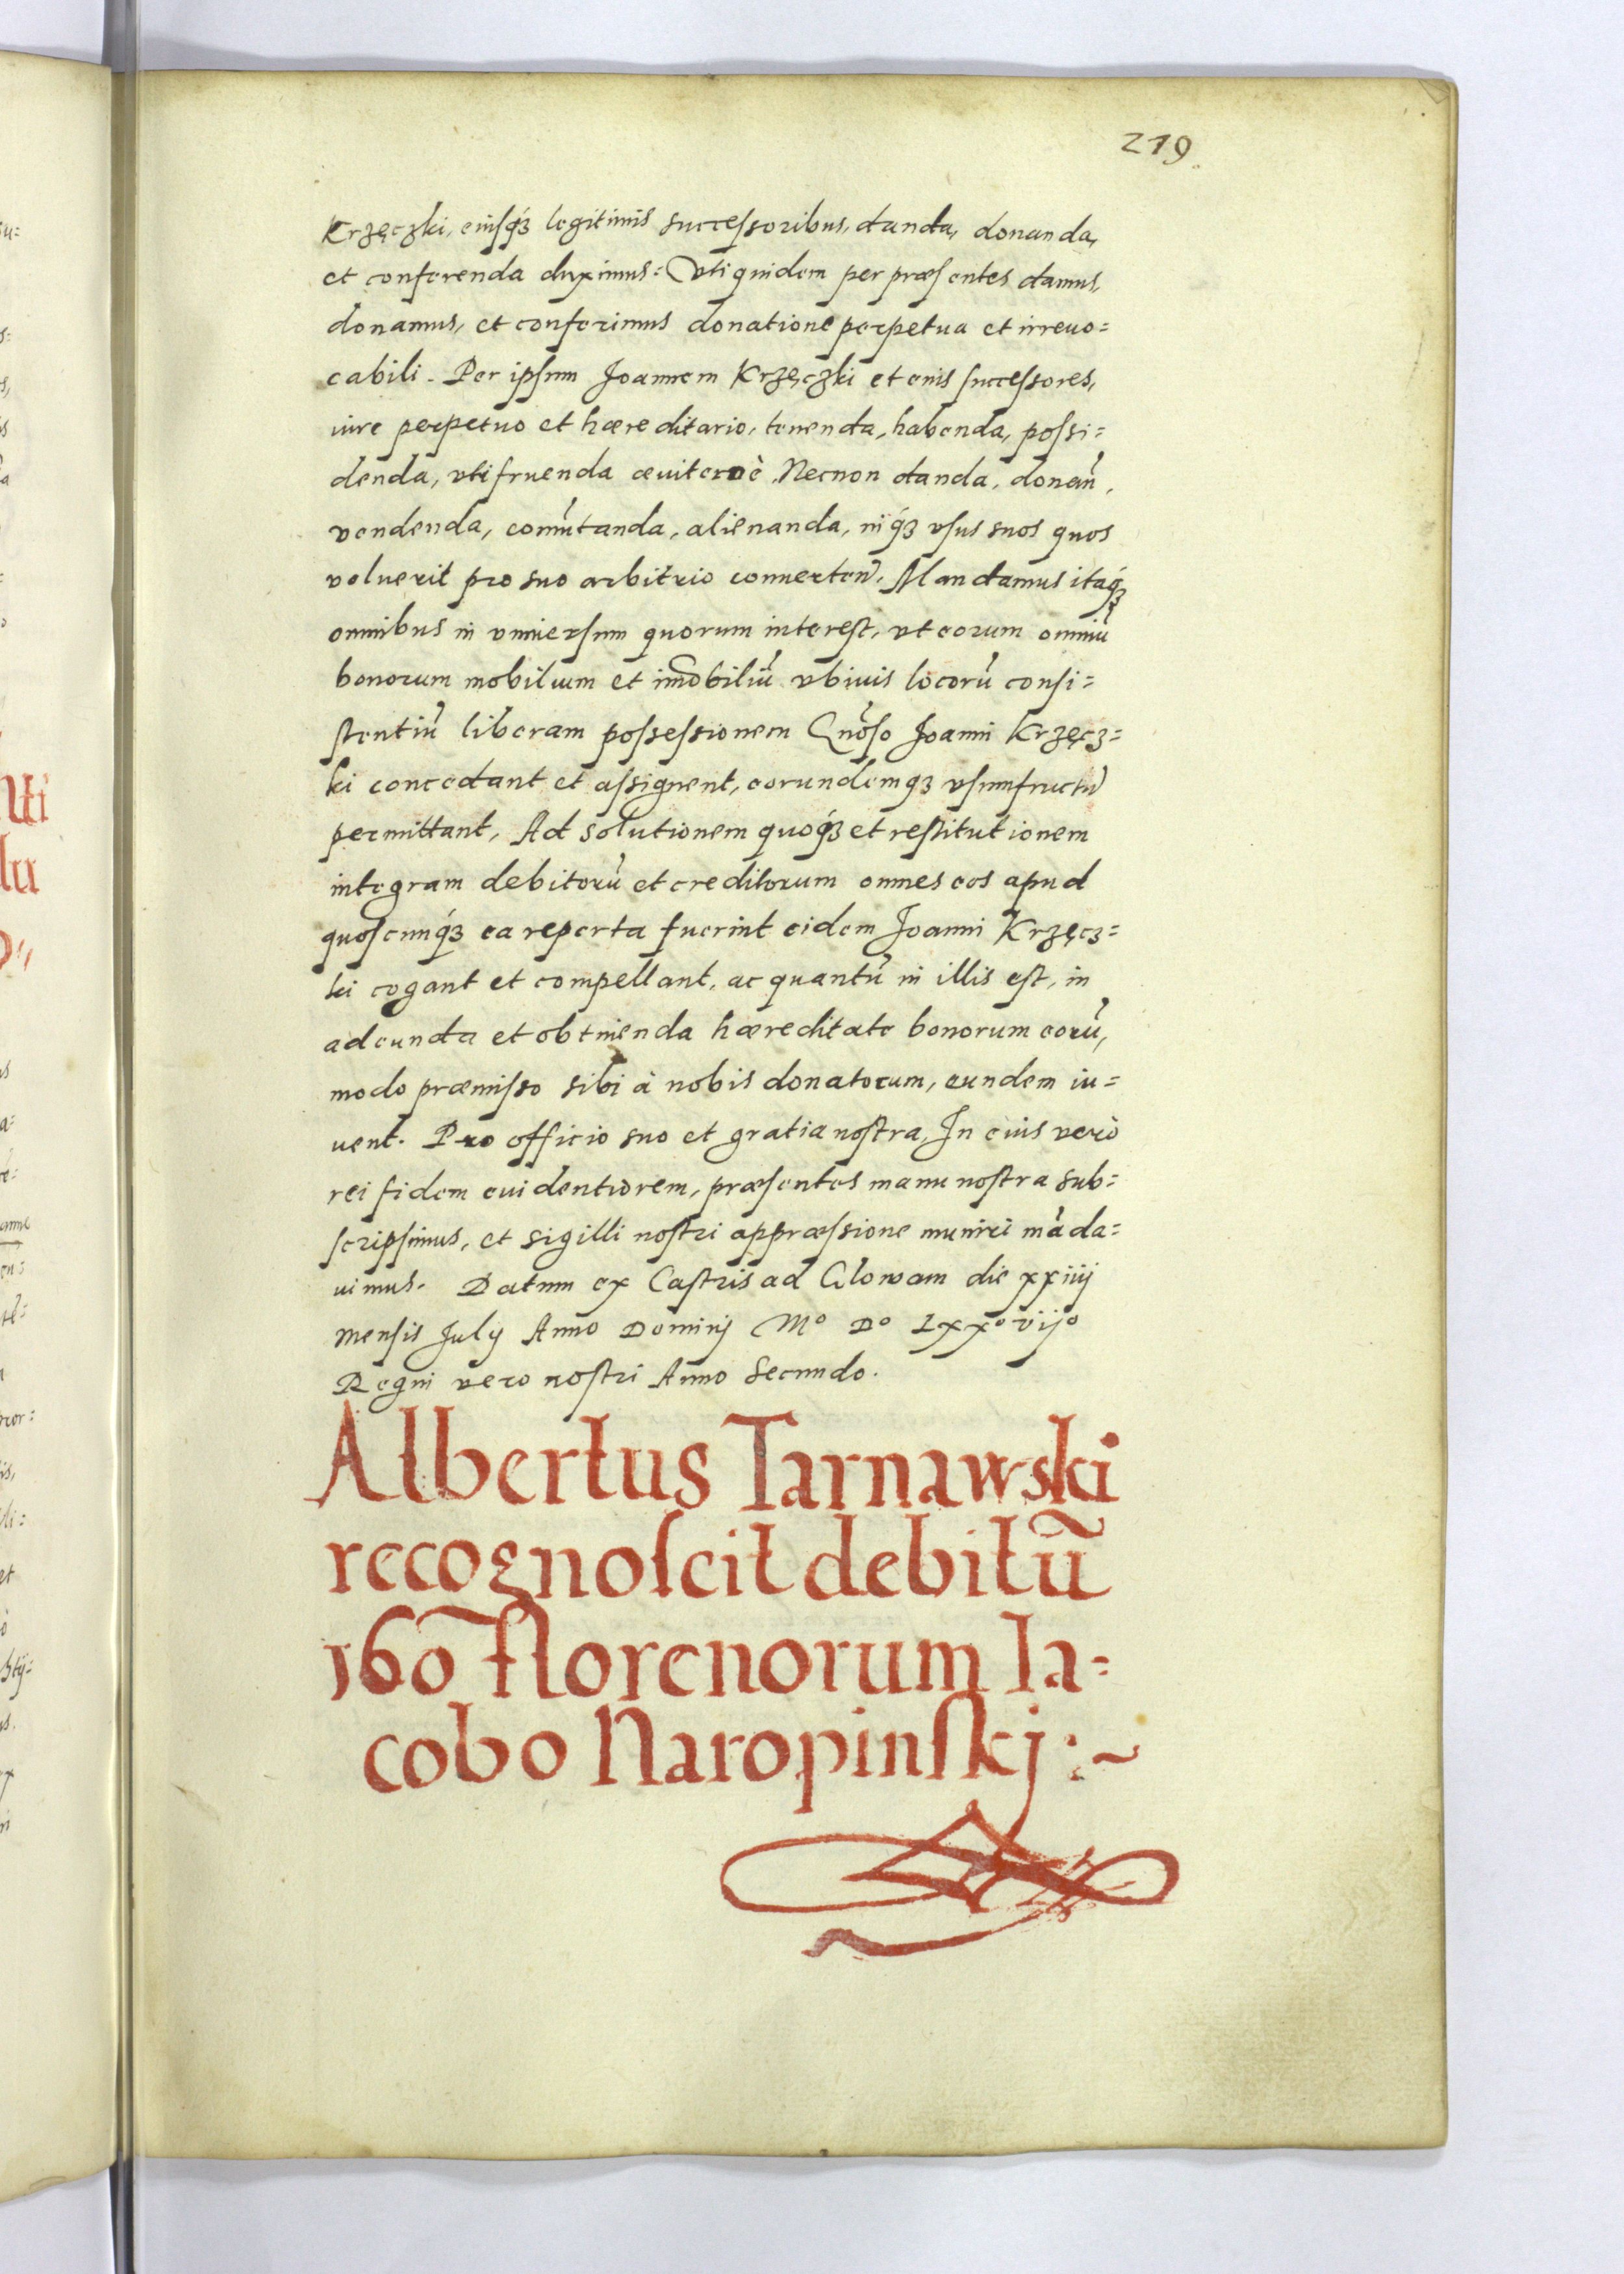 219
Krzęczki, eiusq́ꝫ legitimis successoribus, danda, donanda,
et conferenda duximus: Vti quidem per præsentes damus,
donamus, et conferimus donatione perpetua et irreuo=
cabili. Per ipsum Joannem Krzęczki et eius successores,
iure perpetuo et hæreditario, tenenda, habenda, possi=
denda, vtifruenda æuiternè. Necnon danda, donan̄,
vendenda, com̄utanda, alienanda, inq́ꝫ vsus suos quos
voluerit pro suo arbitrio conuerten̄. Mandamus itaq́ꝫ
omnibus in vniuersum quorum interest, vt eorum omniū
bonorum mobilium et im̄obiliū vbiuis locorū consi=
stentiū liberam possessionem Gn̄oso Joanni Krzęcz=
ki concedant et assignent, eorundemqꝫ vsumfructū
permittant, Ad solutionem quoq́ꝫ et restitutionem
integram debitorū et creditorum omnes eos apud
quoscunq́ꝫ ea reperta fuerint eidem Joanni Krzęcz=
ki cogant et compellant, ac quantū in illis est, in
adeunda et obtinenda hæreditate bonorum eorū,
modo præmisso sibi à nobis donatorum, eundem iu=
uent. Pro officio suo et gratia nostra, In cuius verò
rei fidem euidentiorem, præsentes manu nostra sub=
scripsimus, et sigilli nostri appræssione muniri mãda=
uimus. Datum ex Castris ad Glowam die xxiiij
mensis July Anno Dominj Mº Dº Lxxº vijº
Regni vero nostri Anno Secundo.
Albertus Tarnawski
recognoscit debitū
160 florenorum Ia=
cobo Naropinskj :~